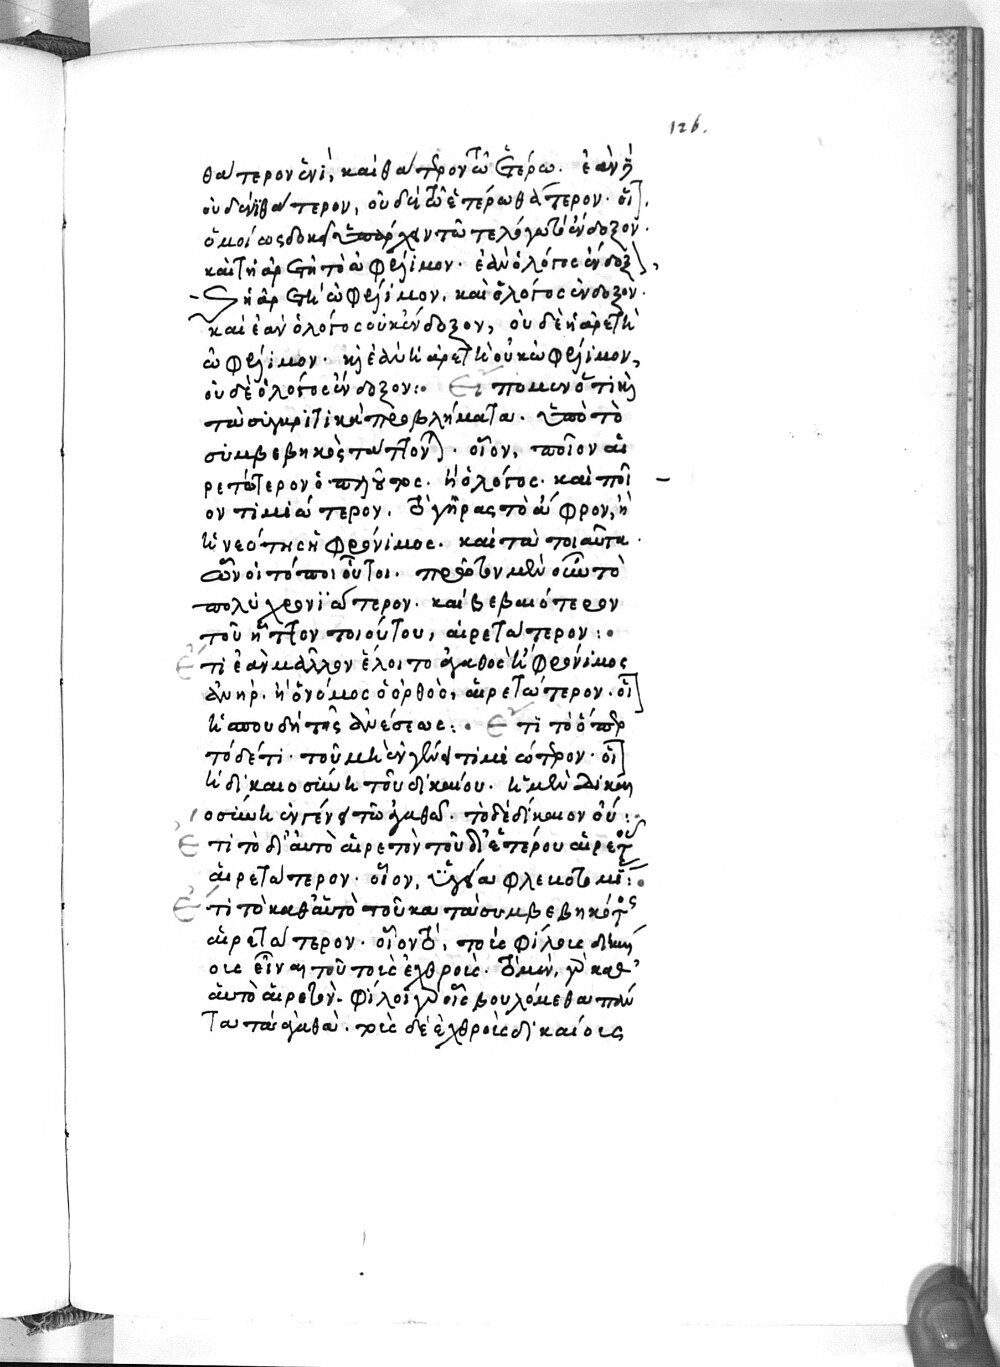 126.
θάτερον ἑνὶ, καὶ θάτερον τῷ ἑτέρω. ἐὰν ἢ
οὐδενὶ θάτερον, οὐδὲ τῷ ἑτέρω θάτερον. οἷ
ὁμοίως δοκεῖ ὑπάρχειν τῶ τε λόγω τὸ ἔνδοξον.
καὶ τῆ ἀρετῆ τὸ ὠφέλιμον. ἐὰν ὁ λόγος ἔνδοξ,
ἡ ἀρετὴ ὠφέλιμον, καὶ ὁ λόγος ἔνδοξον.
καὶ ἐὰν ὁ λόγος οὐκ ἔνδοξον, οὐδὲ ἡ ἀρετὴ
ὠφέλιμον. κὶ ἐὰν ἡ ἀρετὴ οὐκ ὠφέλιμον,
οὐδὲ ὁ λόγος ἔνδοξον: Εἴπομεν ὅτι κὶ
τὰ συγκριτικὰ προβλήματα. ὑπὸ τὸ
συμβεβηκὸς τάττον. οἷον, ποῖον αἱ
ρετώτερον ὁ πλοῦτος. ἢ ὁ λόγος. καὶ ποῖ
ον τιμιώτερον. τὸ γῆρας τὸ ἄφρον, ἢ
ἡ νεότης ἡ φρόνιμος. καὶ τὰ τοιαῦτα.
ὧν οἱ τόποι οὗτοι. πρῶτον μὲν οὖν τὸ
πολυχρονϊώτερον. καὶ βεβαιότερον
τοῦ ἧττον τοιούτου, αἱρετώτερον:
Ἔτι ἐὰν μᾶλλον ἕλοιτο ἀγαθὸς ἢ φρόνιμος
ἀνὴρ. ἢ ὁ νόμος ὁ ὀρθὸς, αἱρετώτερον. οἷ
ἡ σπουδὴ τῆς ἀνέσεως: Ἔτι τὸ ὅπερ
τόδε τι. τοῦ μὴ ἐν γένει τιμιώτερον. οἷ
ἡ δικαιοσύνη τοῦ δικαίου. ἡ μὲν δικαι
οσύνη ἐν γένει τῶ ἀγαθῶ. τὸ δὲ δίκαιον οὔ:
Ἔτι τὸ δι' αὐτὸ αἱρετὸν τοῦ δι' ἑτέρου αἱρετοῦ
αἱρετώτερον. οἷον, ὑγεία φλεβοτομί:
Ἔτι τὸ καθ' αὑτὸ τοῦ κατὰ συμβεβηκότος
αἱρετώτερον. οἷον τὸ, τοὺς φίλους δικαί
ους εἶναι τοῦ τοὺς ἐχθρούς. τὸ μὲν, γὰρ καθ'
αὑτὸ αἱρετόν. φίλοις γὰρ οἷς βουλόμεθα πάν
τα τἀγαθὰ. τοὺς δὲ ἐχθροὺς δικαίους